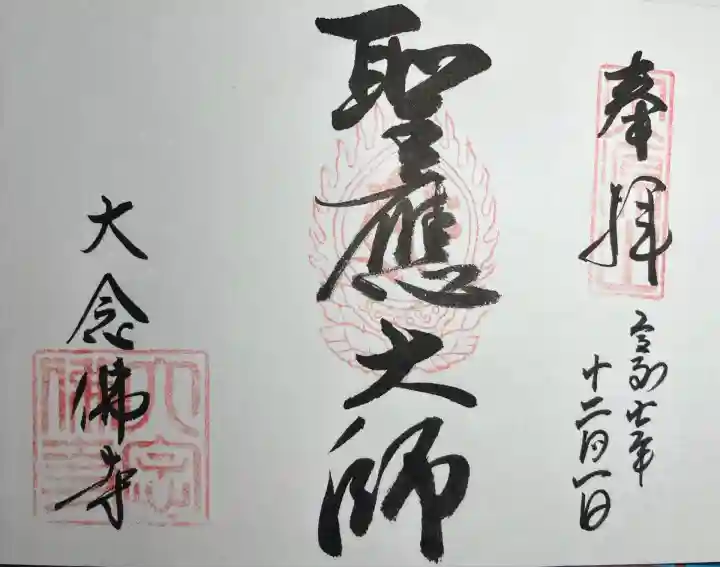 奉拝
令和七年
十二月一日
聖應大師
大念佛寺
大念佛寺